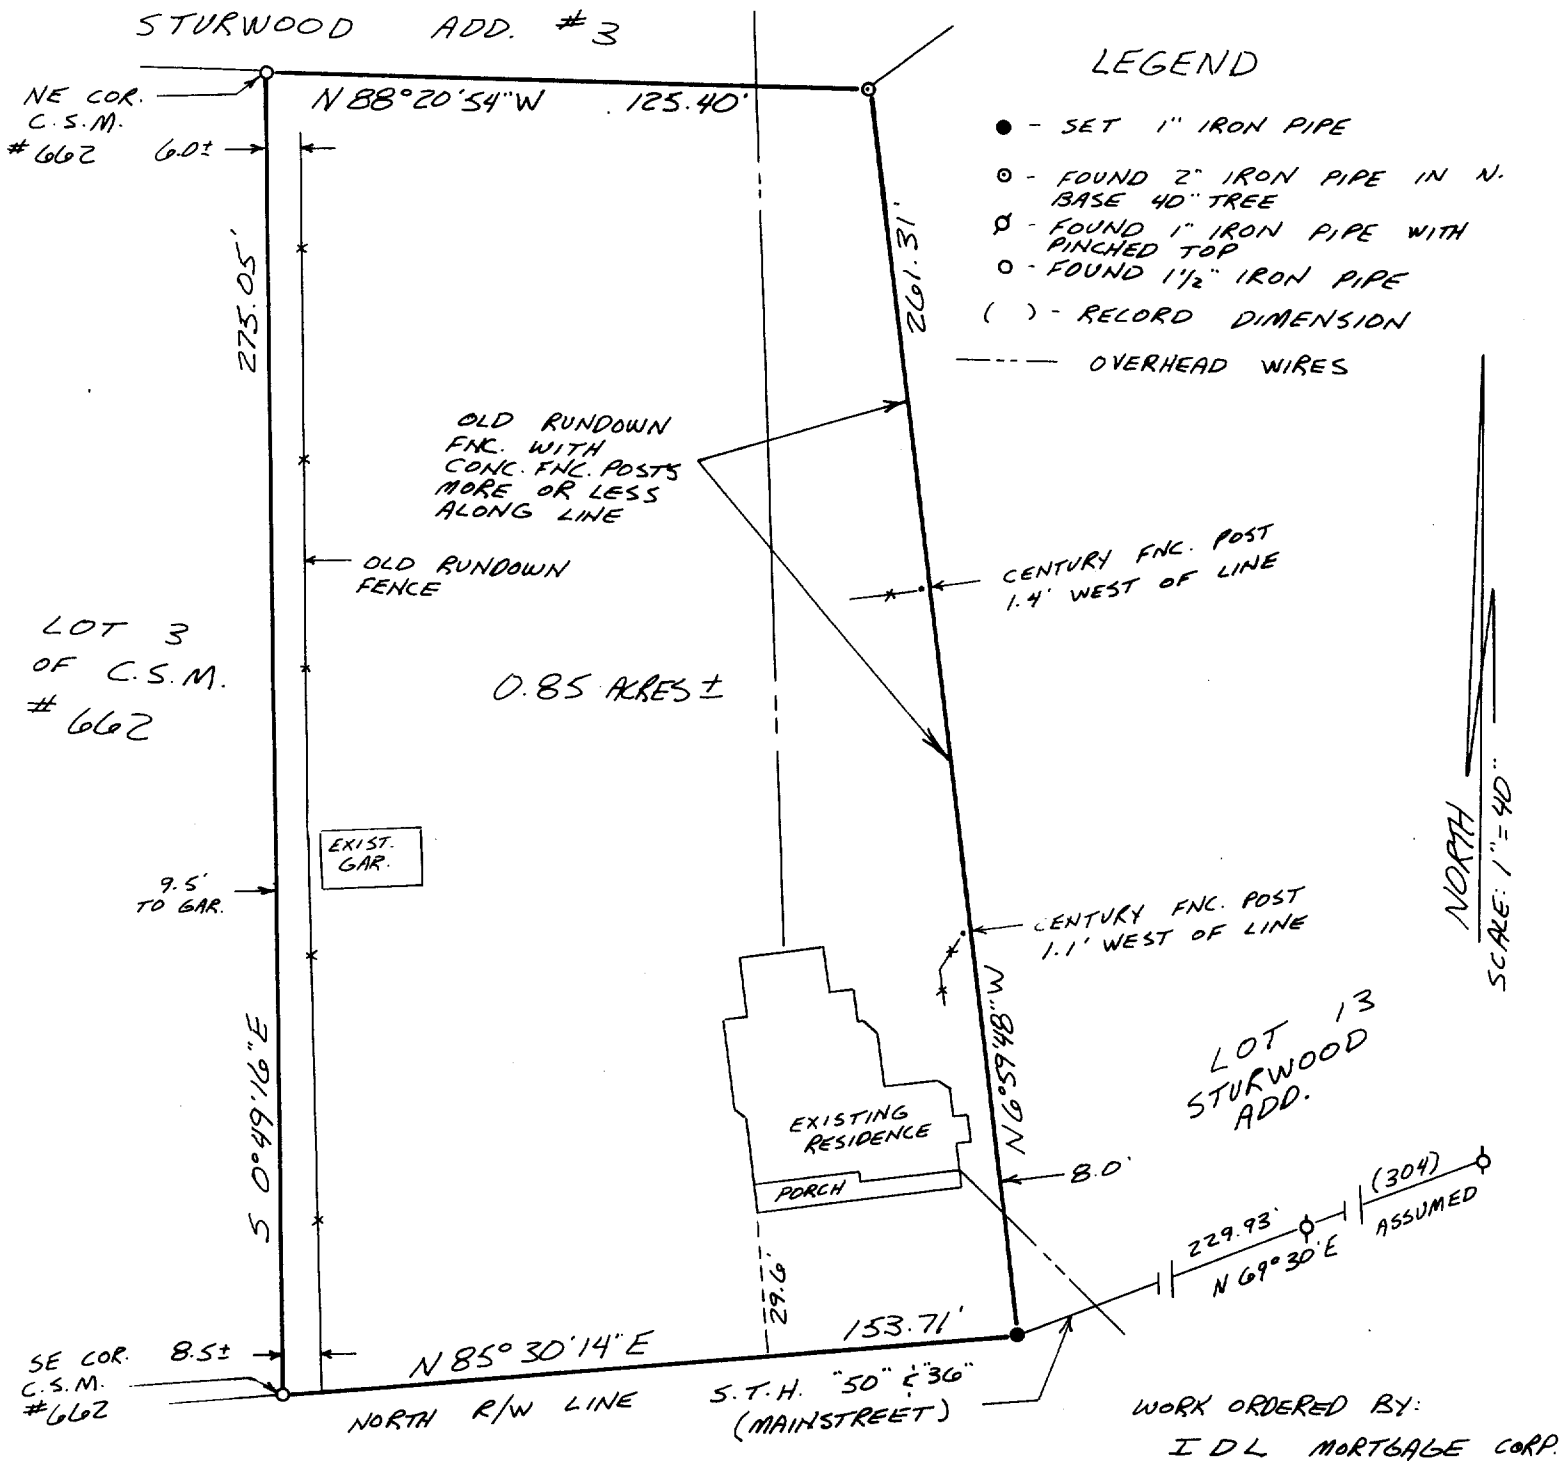 STURWOOD ADD. #3
NE COR.
C.S.M.
#662
6.0±
N 88°20'54"W 125.40'
LEGEND
● - SET 1" IRON PIPE
⊙ - FOUND 2" IRON PIPE IN N.
BASE 40" TREE
- FOUND 1" IRON PIPE WITH
PINCHED TOP
○ - FOUND 1 1/2" IRON PIPE
( ) - RECORD DIMENSION
OVERHEAD WIRES
275.05'
261.31'
OLD RUNDOWN
FNC. WITH
CONC. FNC. POSTS
MORE OR LESS
ALONG LINE
OLD RUNDOWN
FENCE
CENTURY FNC. POST
1.4' WEST OF LINE
LOT 3
OF C.S.M.
#662
0.85 ACRES ±
EXIST.
GAR.
9.5'
TO GAR.
NORTH
SCALE: 1" = 40"
CENTURY FNC. POST
1.1' WEST OF LINE
S 0°49'16"E
N 6°59'48"W
LOT 13
STURWOOD
ADD.
EXISTING
RESIDENCE
PORCH
8.0'
29.6'
229.93'
N 69°30'E
(304)
ASSUMED
153.71'
N 85°30'14"E
SE COR.
C.S.M.
#662
8.5±
NORTH R/W LINE
S.T.H. "50" & "36"
(MAINSTREET)
WORK ORDERED BY:
IDL MORTGAGE CORP.